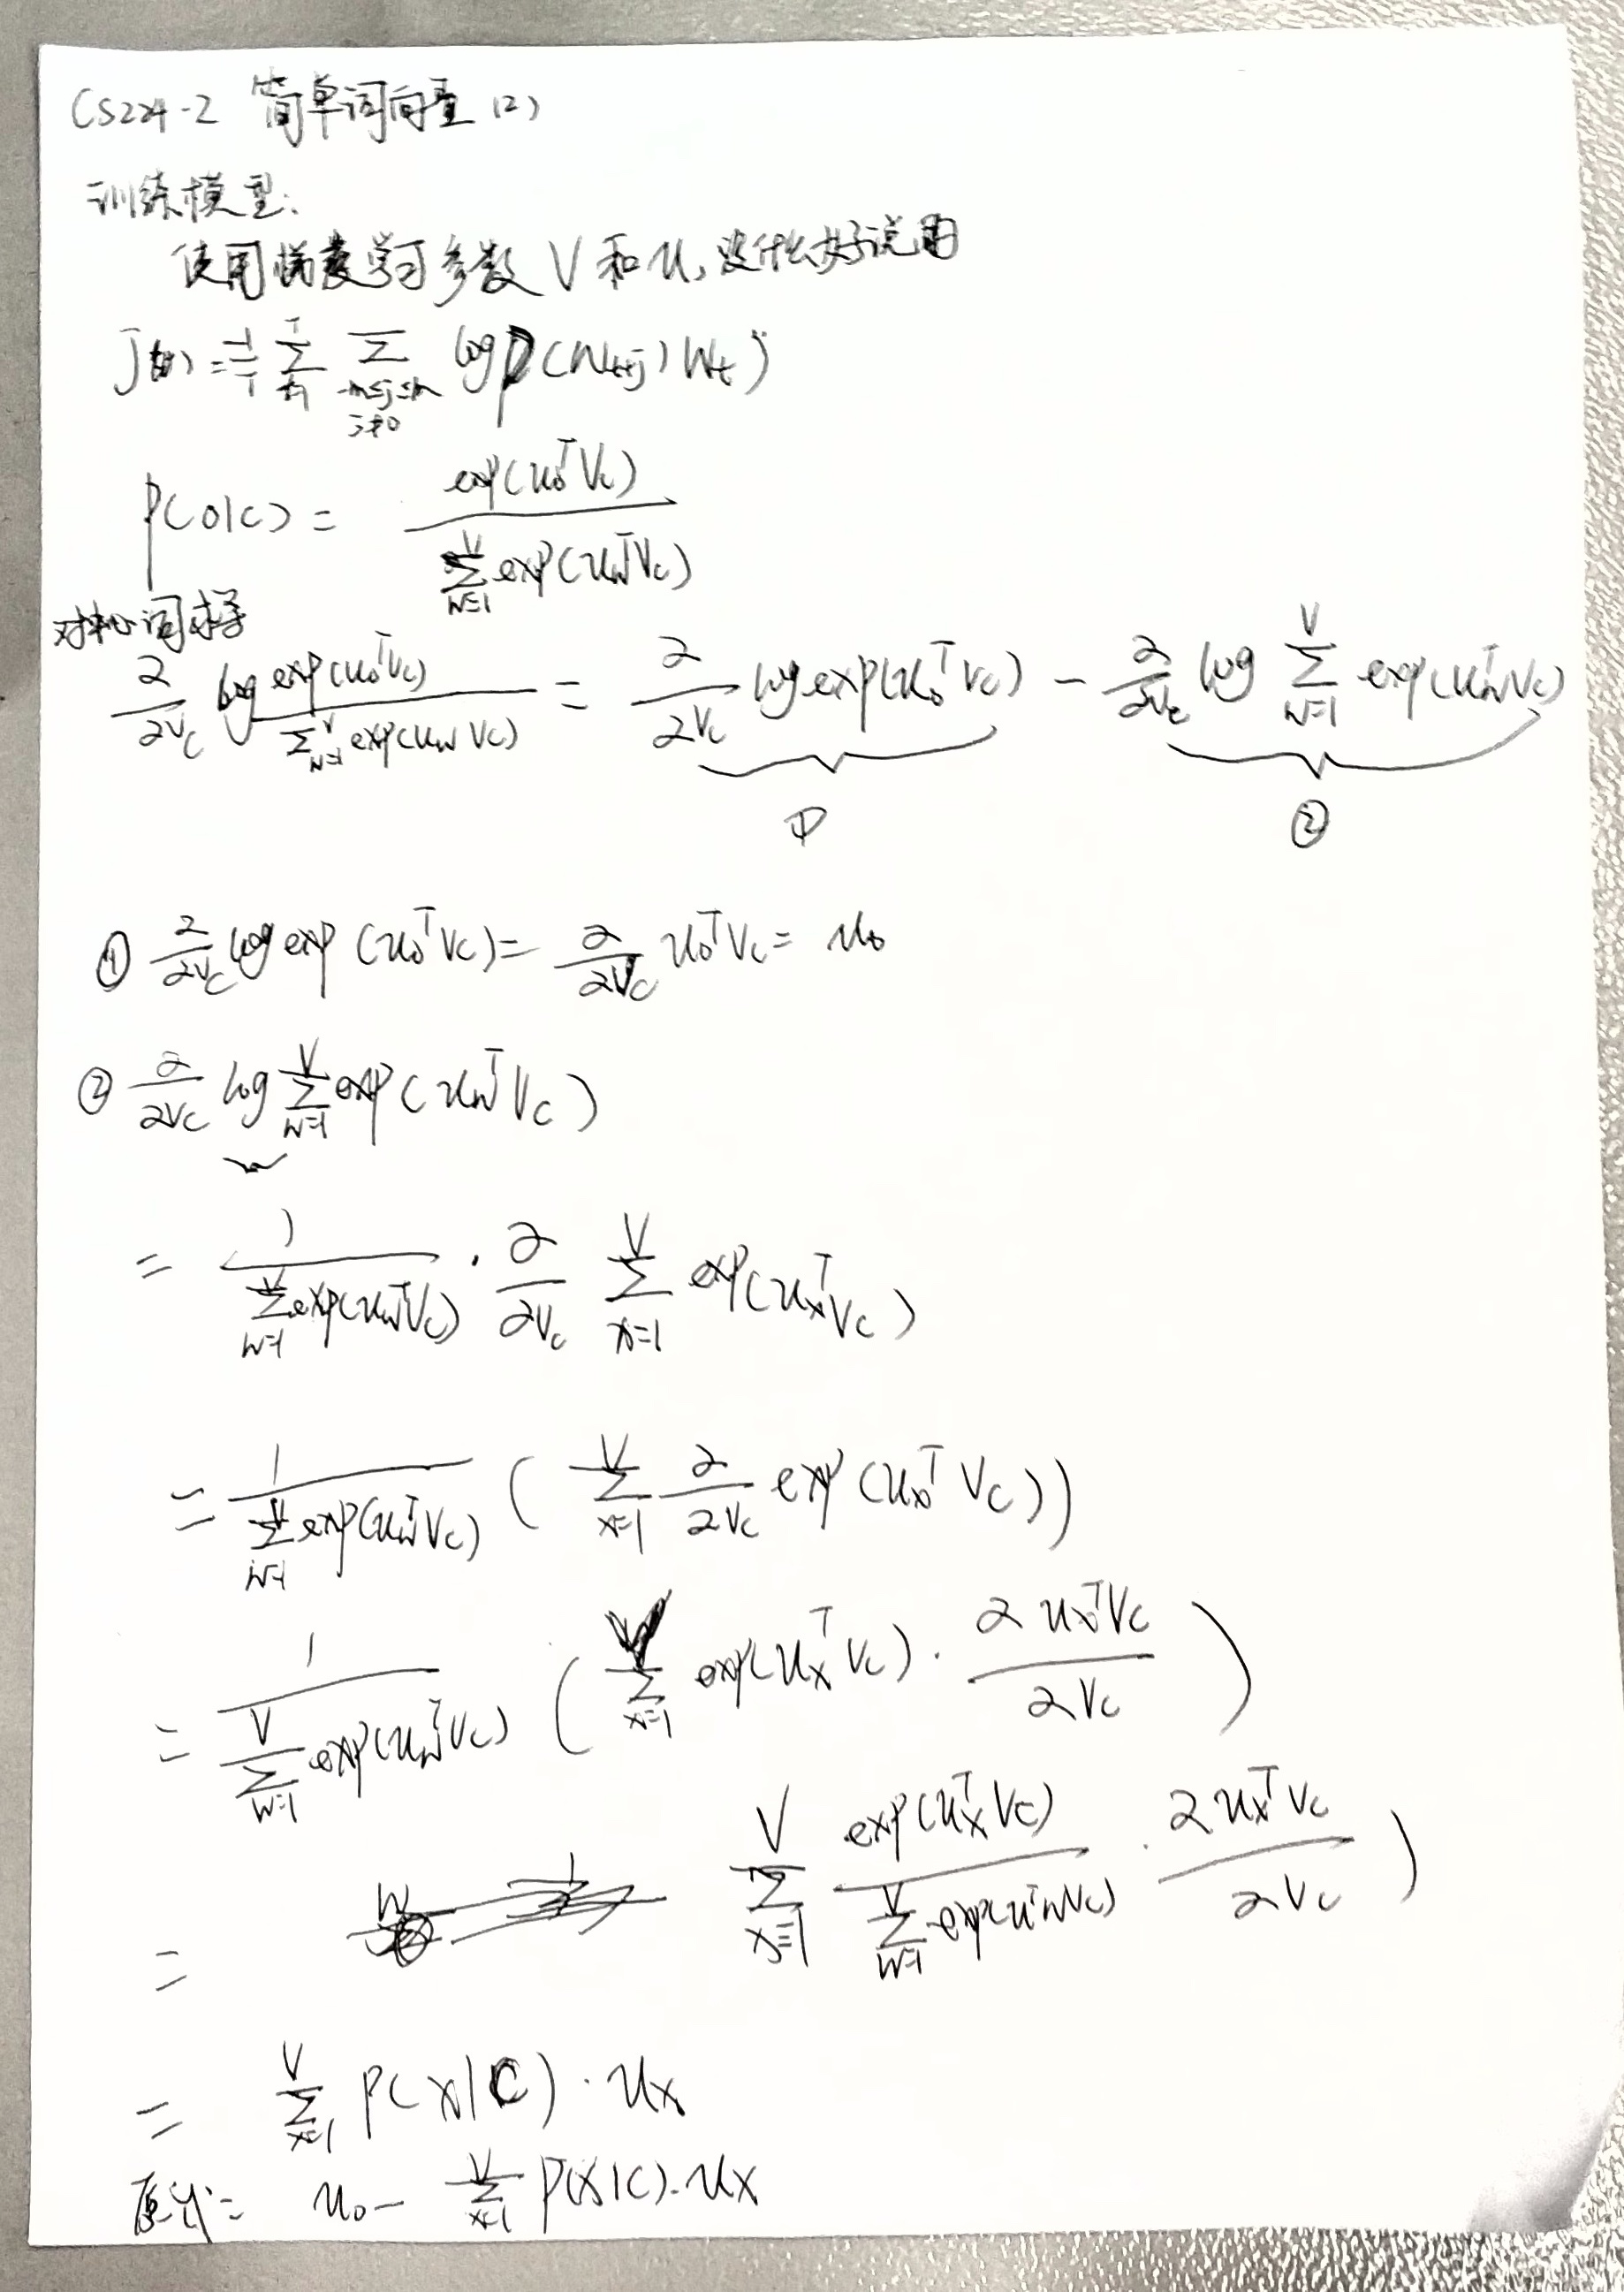 CS224-2 简单词向量(2)
训练模型:
使用梯度学习参数 V和u, 没什么好说的
J(θ) = -1/T Σ_{t=1}^{T} Σ_{-m≤j≤m, j≠0} log P(W_{t+j} | W_t)
P(o|c) = exp(u_o^T V_c) / Σ_{w=1}^{V} exp(u_w^T V_c)
对中心词求导
∂/∂V_c log exp(u_o^T V_c) / Σ_{w=1}^{V} exp(u_w V_c) = ∂/∂V_c log exp(u_o^T V_c) - ∂/∂V_c log Σ_{w=1}^{V} exp(u_w^T V_c)
① ②
① ∂/∂V_c log exp(u_o^T V_c) = ∂/∂V_c u_o^T V_c = u_o
② ∂/∂V_c log Σ_{w=1}^{V} exp(u_w^T V_c)
= 1 / Σ_{w=1}^{V} exp(u_w^T V_c) · ∂/∂V_c Σ_{x=1}^{V} exp(u_x^T V_c)
= 1 / Σ_{w=1}^{V} exp(u_w^T V_c) ( Σ_{x=1}^{V} ∂/∂V_c exp(u_x^T V_c))
= 1 / Σ_{w=1}^{V} exp(u_w^T V_c) ( Σ_{x=1}^{V} exp(u_x^T V_c) · ∂u_x^T V_c / ∂V_c )
= Σ_{x=1}^{V} exp(u_x^T V_c) / Σ_{w=1}^{V} exp(u^T w V_c) · ∂u_x^T V_c / ∂V_c )
= Σ_{x=1}^{V} P(x|c) · u_x
原式= u_o - Σ_{x=1}^{V} P(x|c) · u_x